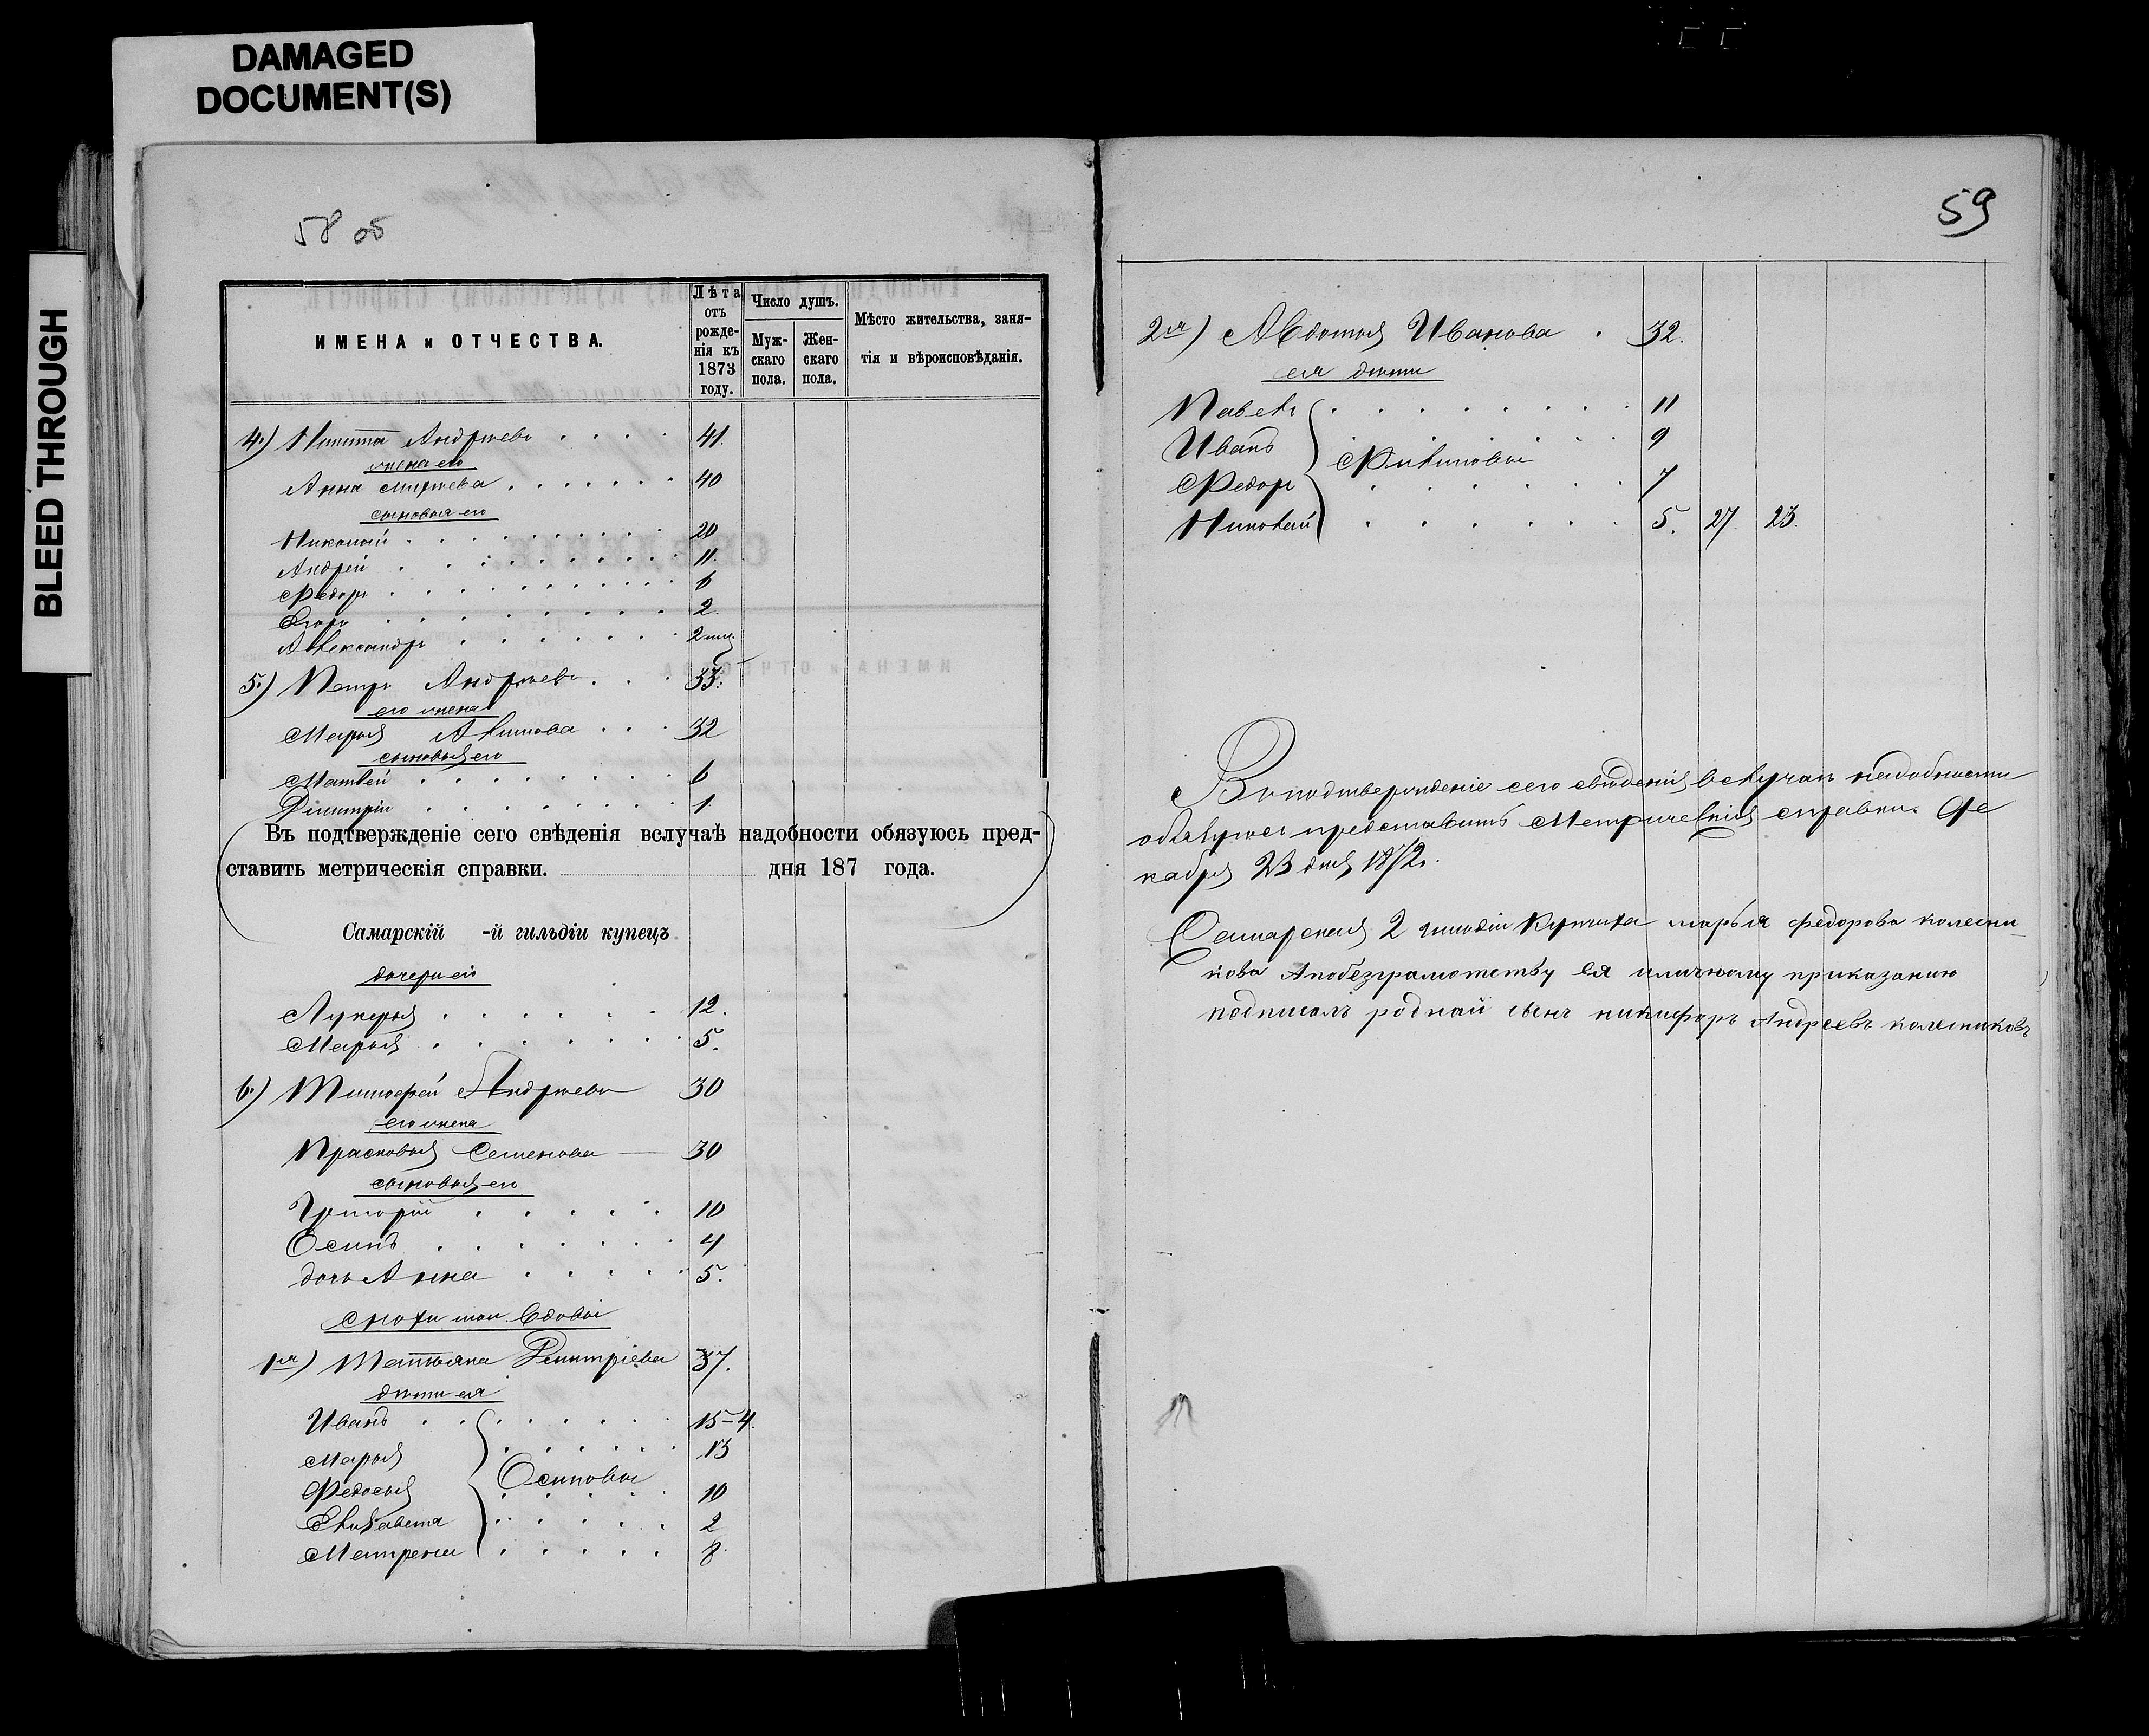 DAMAGED
DOCUMENT(S)
BLEED THROUGH
58 об
ИМЕНА и ОТЧЕСТВА.
Лѣта отъ рожде-нія къ 1873 году.
Число душъ.
Муж-скаго пола.
Жен-скаго пола.
Мѣсто жительства, заня-
тія и вѣроисповѣданія.
4.) Никита Андреевъ 41.
жена его
Анна 40
сыновья его
Николай 20
Андрей 11.
Федоръ 6
Егоръ 2.
Александръ 2 мц.
5.) Петръ Андреевъ 33.
его жена
Марья Акимова 32
сыновья его
Матвей 6
Димитрій 1.
Въ подтвержденіе сего свѣденія вслучаѣ надобности обязуюсь пред-
ставить метрическія справки. дня 187 года.
Самарскій -й гильдіи купецъ
дочери его
Лукерья 12.
Марья 5.
6.) Тимофей Андреевъ 30
его жена
Прасковья Семенова — 30
сыновья его
Григорій 10
Осипъ 4
дочь Анна 5.
снохи мои вдовы
1я) Татьяна Димитріева 37.
дѣти ея
Иванъ 15-4.
Марья 13
Федосья Осиповы 10
Елизавета 2
Матрена 8.
59
2я) Авдотья Иванова 32.
ея дѣти
Павелъ 11
Иванъ 9
Федоръ Филиповы 7
Николай 5. 27. 23.
Въ подтвержденіе сего сведенія вслучаи надобности
обязуюсь представить Метрическія справки. Де
кабря 23 дня 1872 г.
Самарская 2 гильдіи Купчиха марья федорова колесни-
кова Апобезграмотству Ея иличному приказанию
подписалъ родной сынъ никифоръ Андреевъ колесниковъ